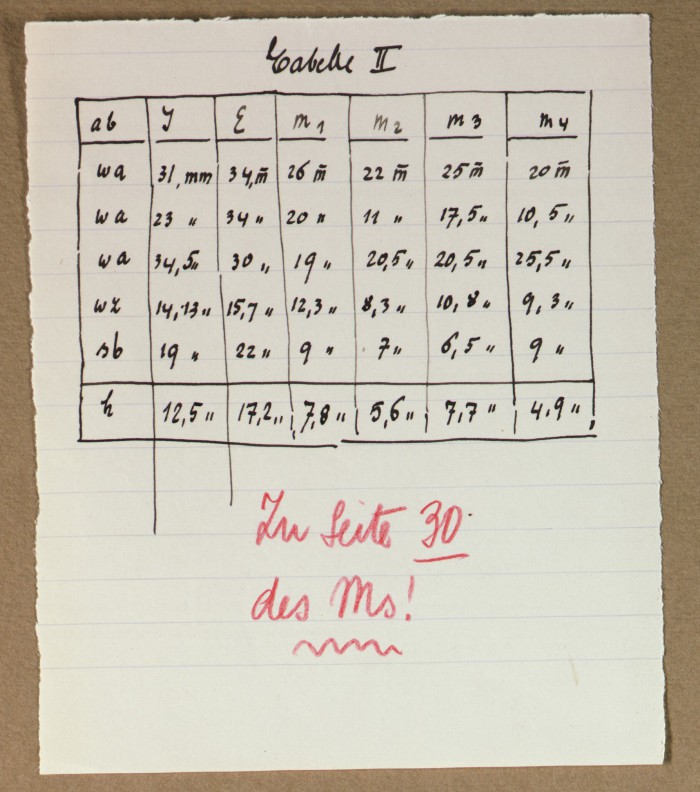 Tabelle II
ab J E m1 m2 m3 m4
wa 31,mm 34,m̄ 26 m̄ 22 m̄ 25 m̄ 20 m̄
wa 23 „ 34 „ 20 „ 11 „ 17,5 „ 10,5 „
wa 34,5 „ 30 „ 19 „ 20,5 „ 20,5 „ 25,5 „
wz 14,13 „ 15,7 „ 12,3 „ 8,3 „ 10,8 „ 9,3 „
sb 19 „ 22 „ 9 „ 7 „ 6,5 „ 9 „
h 12,5 „ 17,2 „ 7,8 „ 5,6 „ 7,7 „ 4.9 „
Zu Seite 30
des Ms!